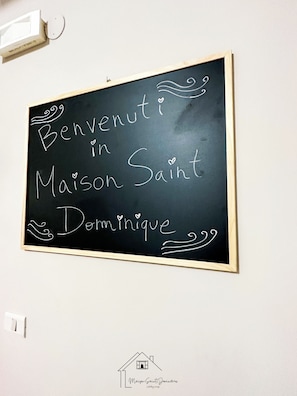 Benvenuti
in
Maison Saint
Dominique
Maison Saint Dominique